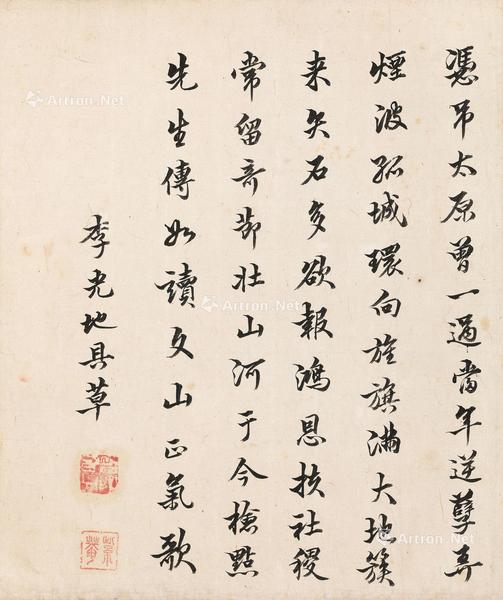 憑吊太原曾一過當年逆孽弄
煙波孤城環向旌旗滿大地簇
来矢石多欲報鴻恩扶社稷
常留奇節壯山河于今檢點
先生傳如讀文山正氣歌
李光地具草
Artron.Net
Artron.Net
Artron.Net
Artron.Net